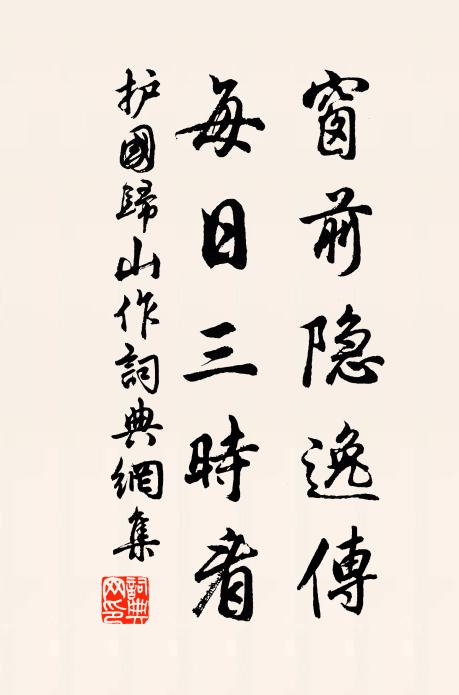 窗前隐逸傳
每日三時看
护國歸山作詞典網集
詞典
网印